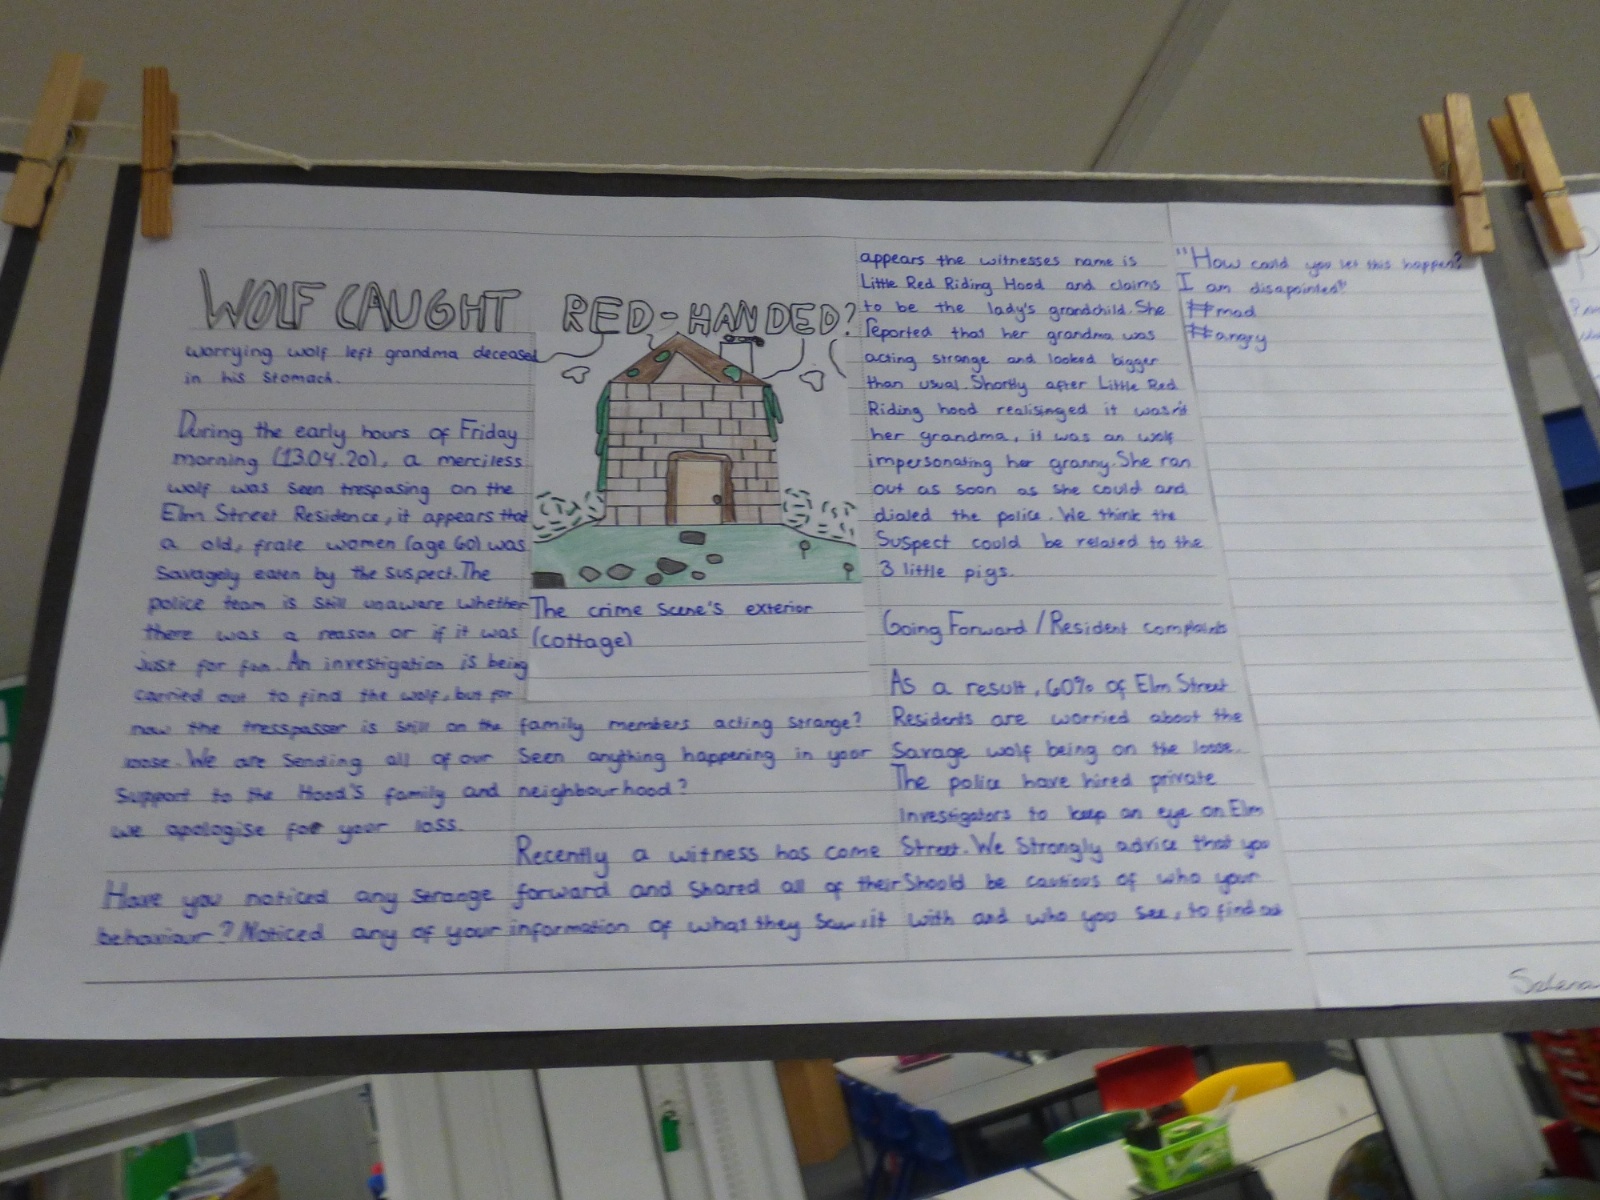 WOLF CAUGHT RED-HANDED?
worrying wolf left grandma deceased
in his stomach.
During the early hours of Friday
morning (13.04.20), a merciless
wolf was seen trespasing on the
Elm Street Residence, it appears that
a old, frale women (age 60) was
Savagely eaten by the suspect. The
police team is still unaware whether
there was a reason or if it was
just for fun. An investigation is being
carried out to find the wolf, but for
now the tresspasser is still on the
loose. We are sending all of our
support to the Hood's family and
we apologise for your loss.
Have you noticed any strange
behaviour? Noticed any of your
The crime scene's exterior
(cottage)
family members acting strange?
Seen anything happening in your
neighbourhood?
Recently a witness has come
forward and shared all of their
information of what they saw, it
appears the witnesses name is
Little Red Riding Hood and claims
to be the lady's grandchild. She
reported that her grandma was
acting strange and looked bigger
than usual. Shortly after Little Red
Riding hood realisinged it wasn't
her grandma, it was an wolf
impersonating her granny. She ran
out as soon as she could and
dialed the police. We think the
Suspect could be related to the
3 little pigs.
Going Forward / Resident complaints
As a result, 60% of Elm Street
Residents are worried about the
Savage wolf being on the loose.
The police have hired private
investigators to keep an eye on Elm
Street. We Strongly advice that you
Should be cautious of who your
with and who you see, to find out
"How could you let this happen?
I am disapointed"
#mad
#angry
Selena